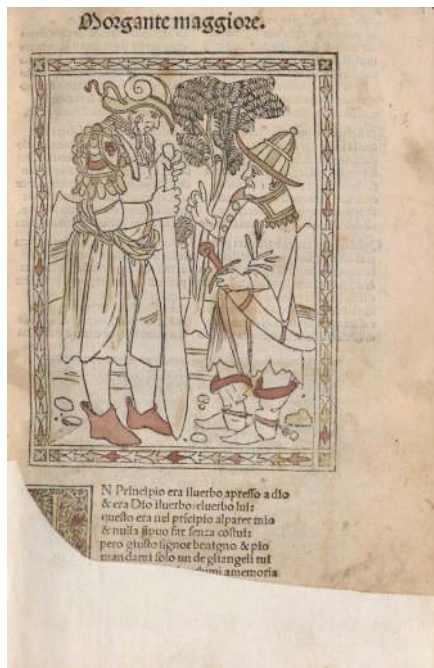 Morgante maggiore.
N Principio era iluerbo apresso a dio
& era Dio iluerbo eluerbo lui:
questo era nel prícipio alparer mio
& nulla si puo far senza costui:
pero giusto signor benigno & pio
mandami solo un de gliangeli tui
amemoria